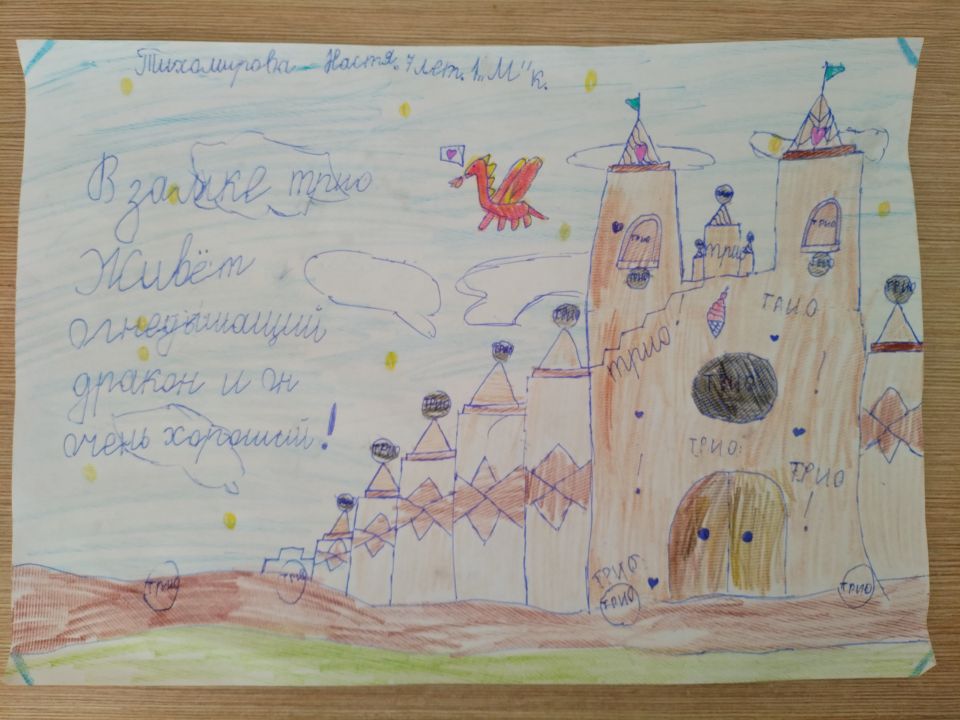 Тихомирова Настя. 7 лет. 1 "М" к.
В замке трио
Живёт
огнедышащий
дракон и он
очень хороший!
трио
трио
трио
трио
трио
трио
трио
трио
трио
ТРИО
трио!
ТРИО
ТРИО:
ТРИО
трио
трио
трио
ТРИО
трио
трио